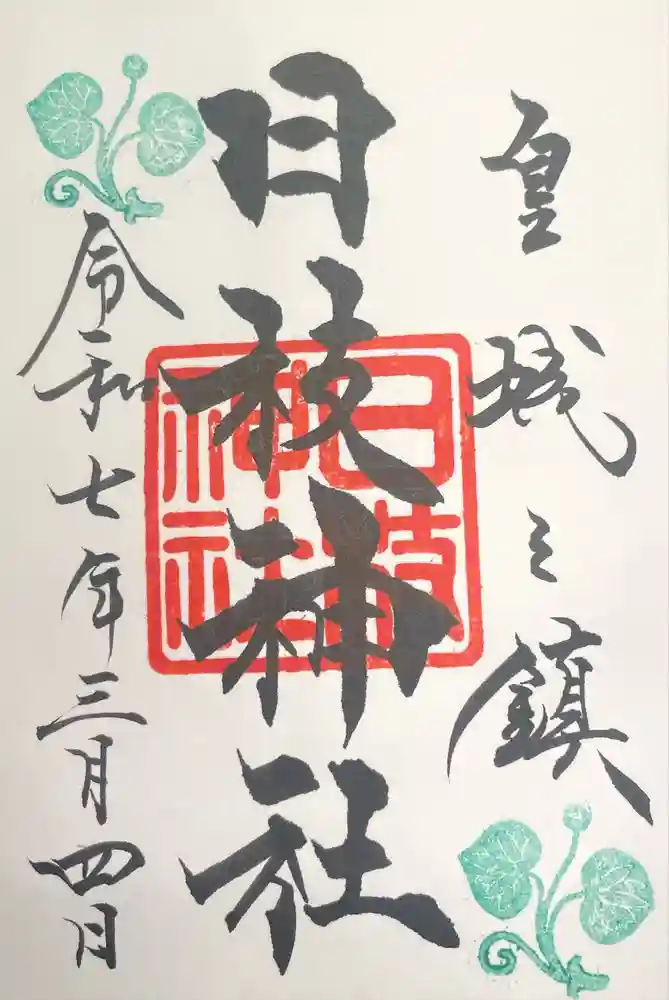 皇城之鎮
日枝神社
日枝神社
令和七年三月四日